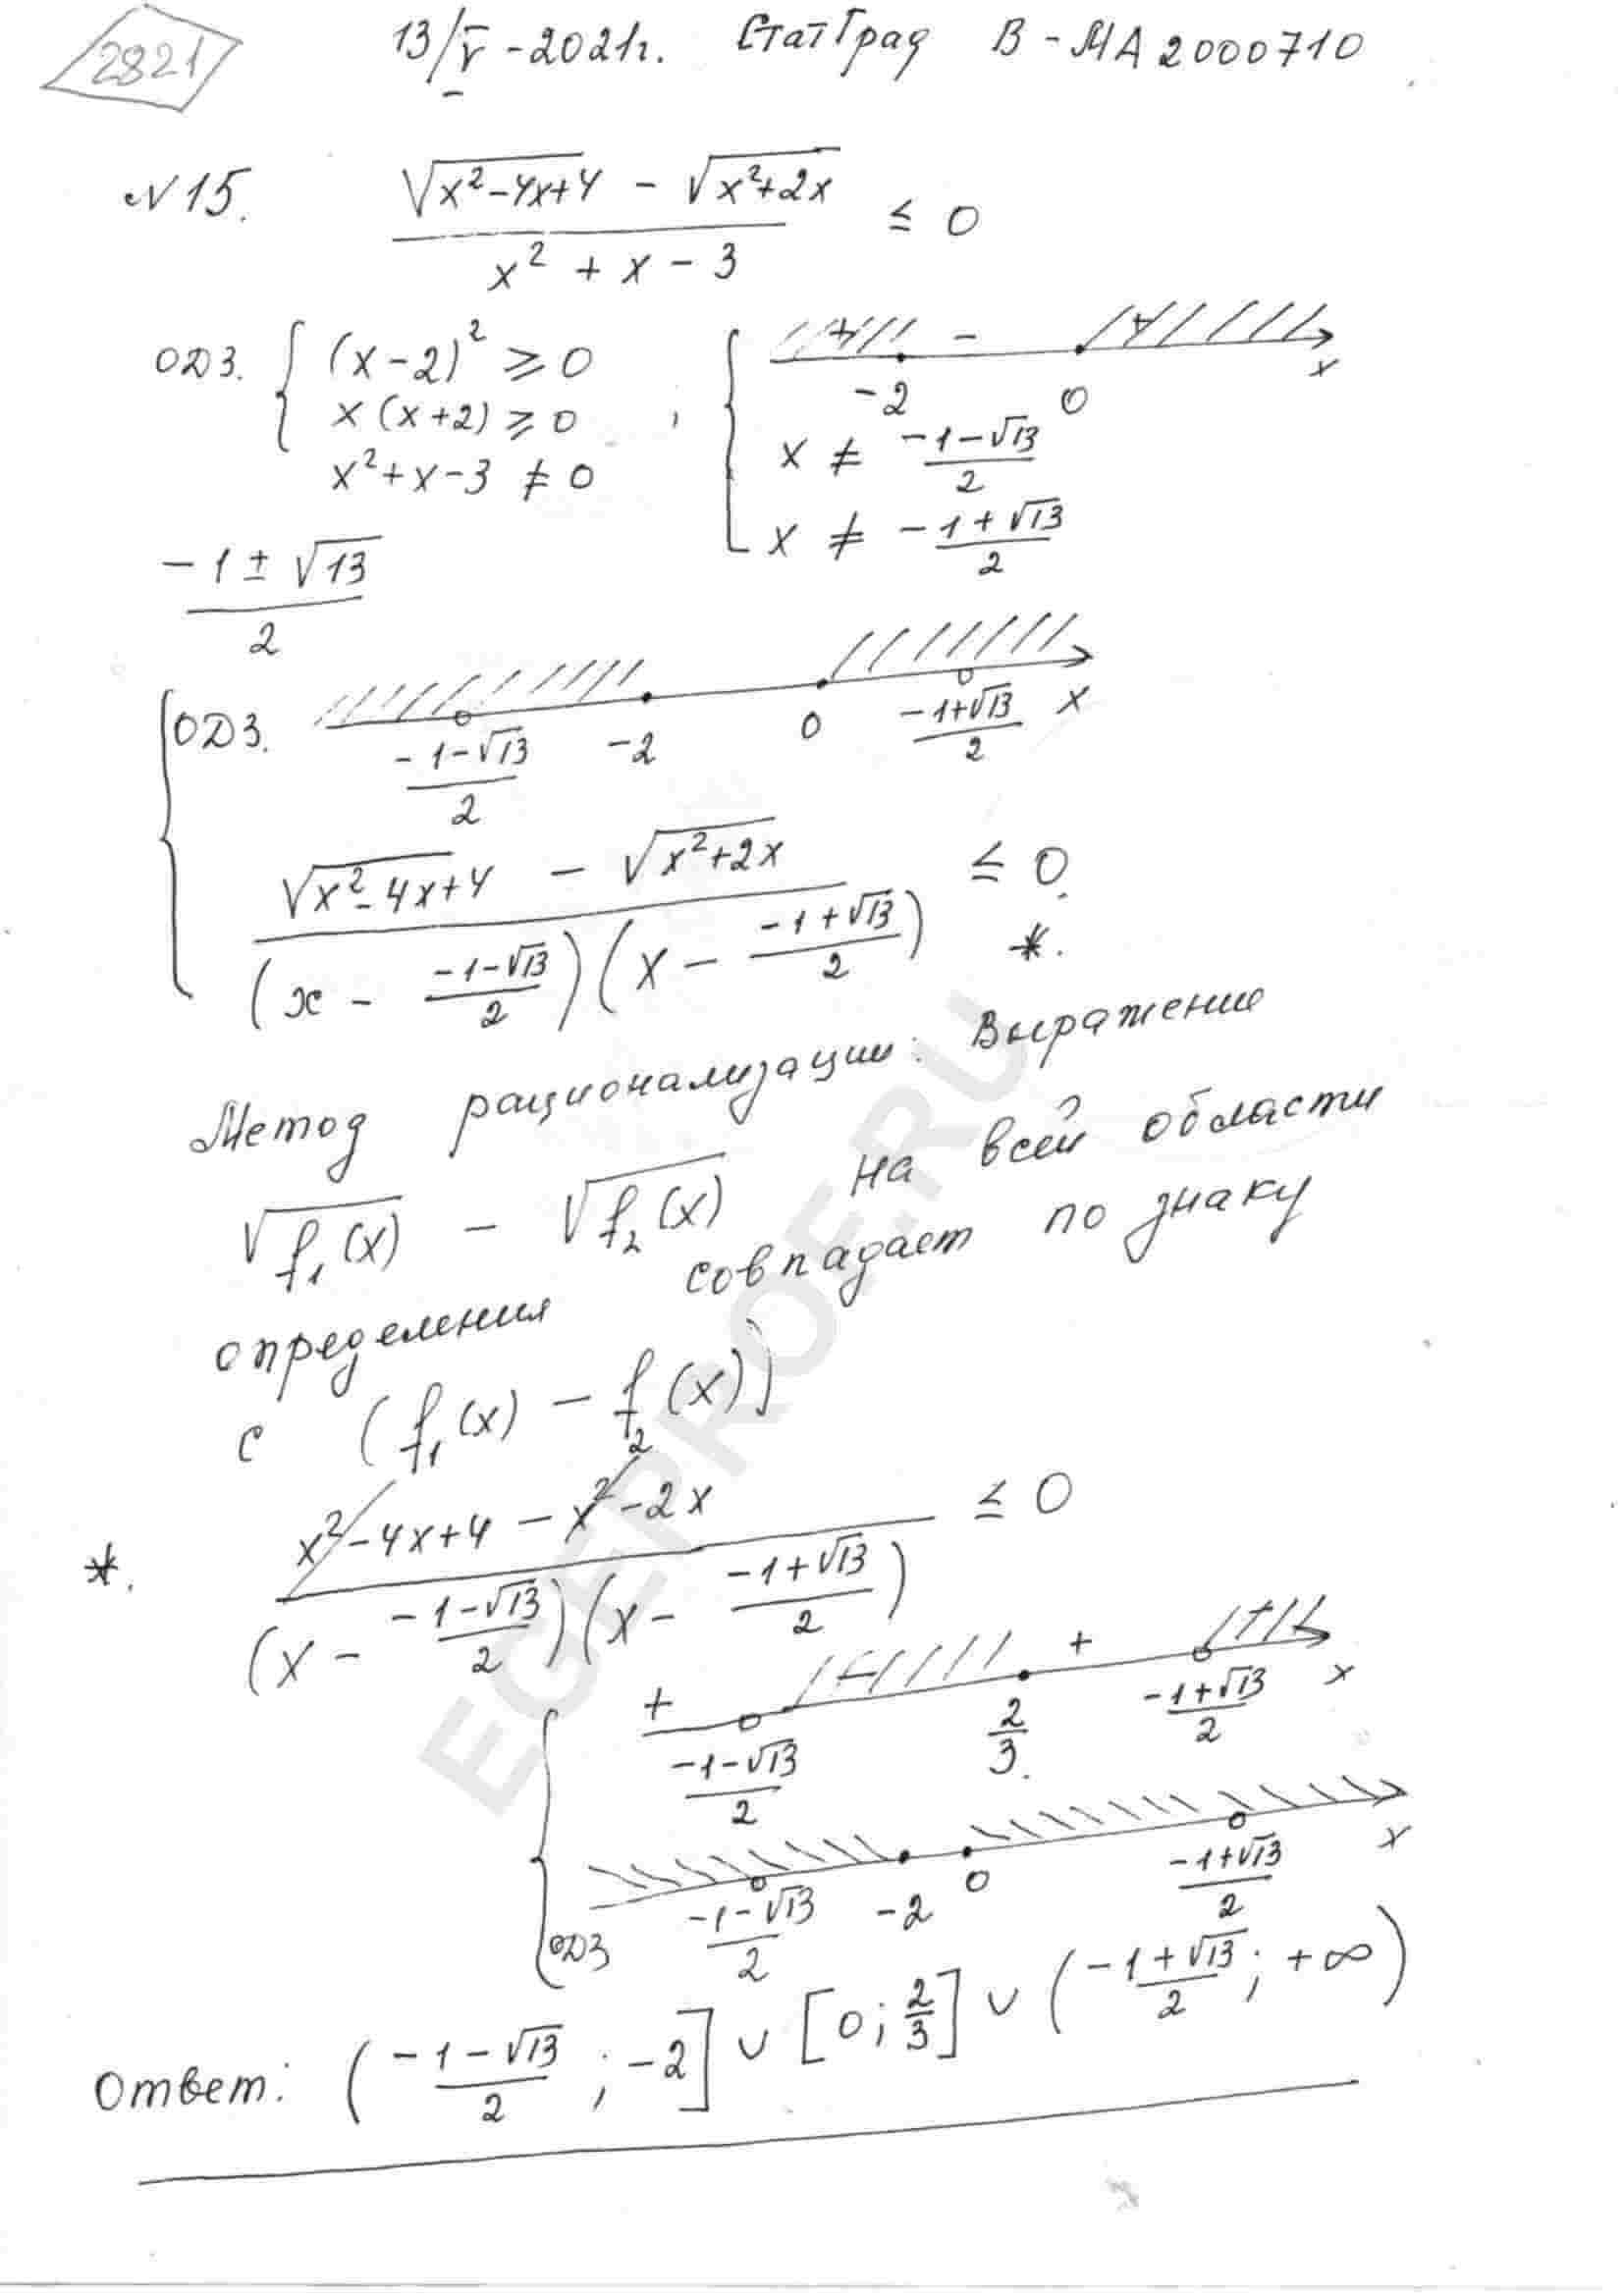 2821
13/V -2021г. СтатГрад В-МА2000710
№15. (√(x²-4x+4) - √(x²+2x)) / (x² + x - 3) ≤ 0
ОДЗ. { (x-2)² ≥ 0 ; x(x+2) ≥ 0 ; x²+x-3 ≠ 0 , { + -2 - 0 + x
x ≠ (-1-√13)/2
x ≠ (-1+√13)/2
(-1 ± √13)/2
{ ОДЗ. (-1-√13)/2 -2 0 (-1+√13)/2 x
(√(x²-4x+4) - √(x²+2x)) / ((x - (-1-√13)/2)(x - (-1+√13)/2)) ≤ 0. *.
Метод рационализации: Выражение
√f₁(x) - √f₂(x) на всей области
определения совпадает по знаку
с (f₁(x) - f₂(x))
*. (x²-4x+4-x²-2x) / ((x - (-1-√13)/2)(x - (-1+√13)/2)) ≤ 0
{ + (-1-√13)/2 - 2/3 + (-1+√13)/2 - x
ОДЗ (-1-√13)/2 -2 0 (-1+√13)/2 x
Ответ: ((-1-√13)/2 ; -2] ∪ [0; 2/3] ∪ ((-1+√13)/2 ; +∞)
EGEPROF.RU